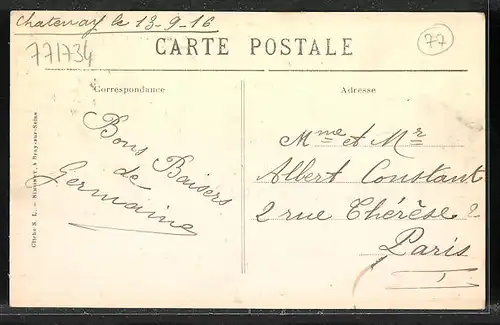 Chatenay le 13-9-16
771734
77
CARTE POSTALE
Correspondance
Adresse
Bons Baisers
de
Germaine
Mme et Mr
Albert Constant
2 rue Thérèse 2
Paris
Cliché S. L. — à Bray-sur-Seine